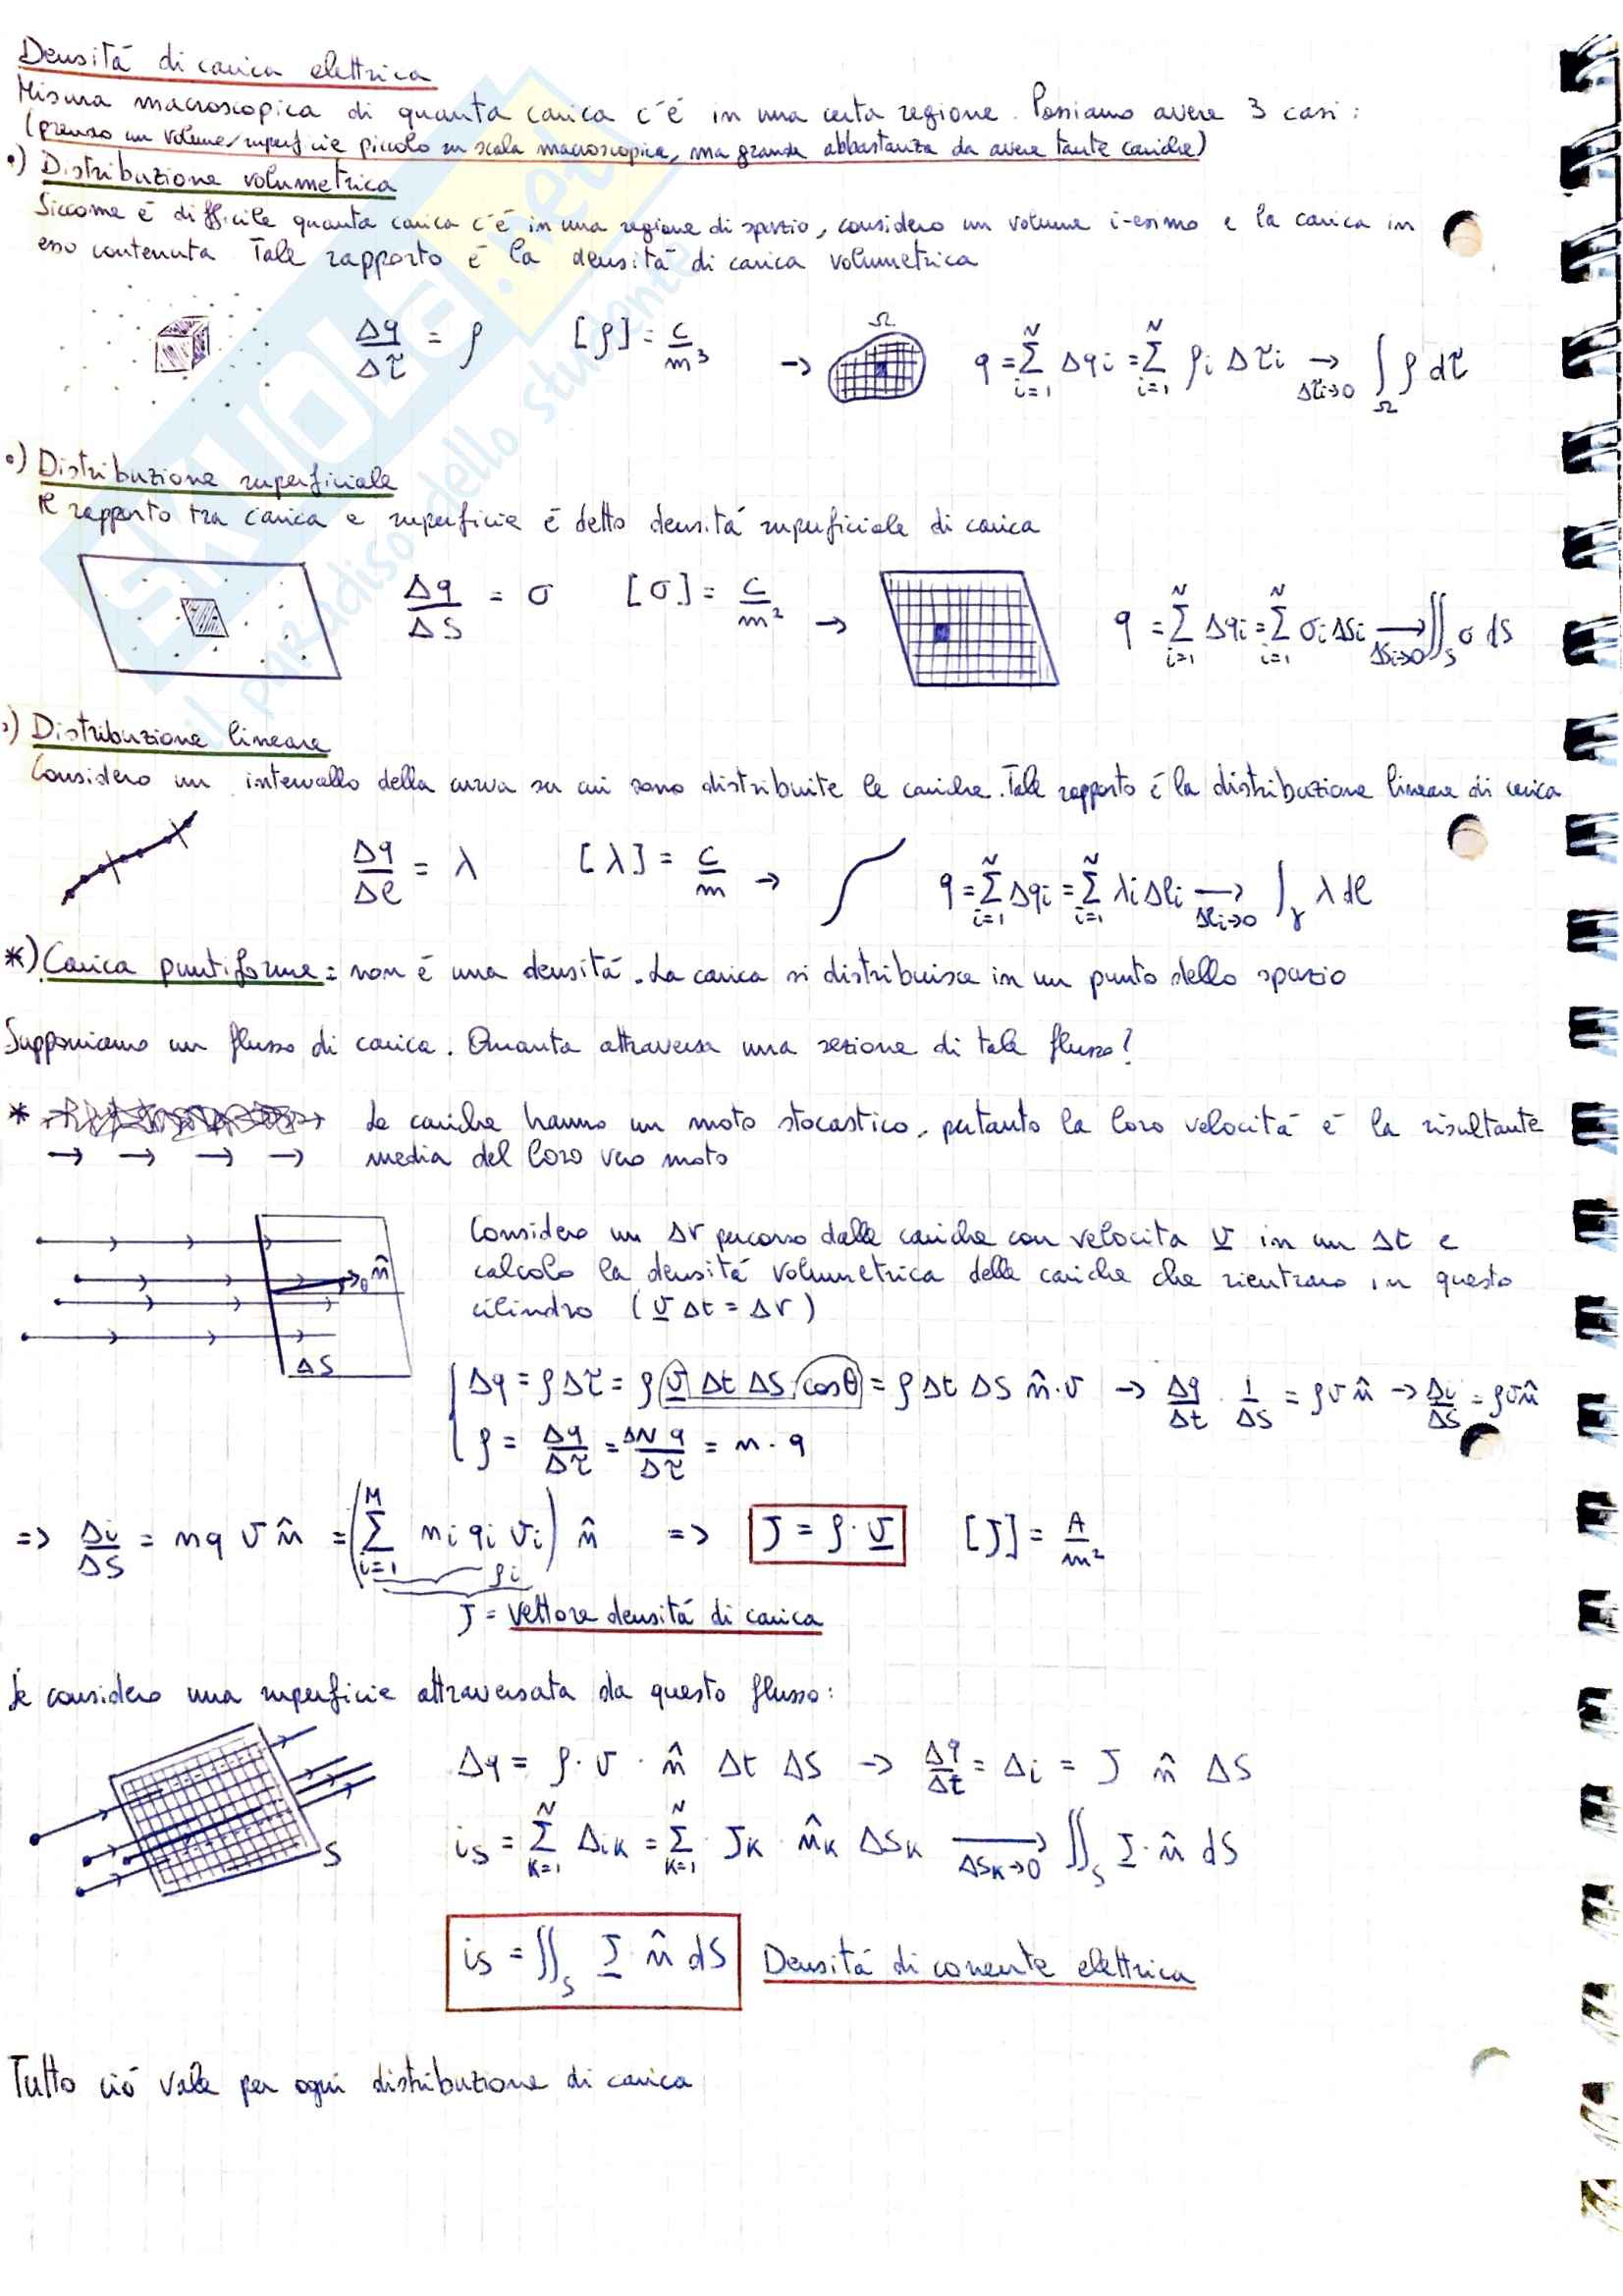 Densitá di carica elettrica
Misura macroscopica di quanta carica c'é in una certa regione. Possiamo avere 3 casi:
(prendo un volume/superficie piccolo su scala macroscopica, ma grande abbastanza da avere tante cariche)
•) Distribuzione volumetrica
Siccome é difficile quanta carica c'é in una regione di spazio, considero un volume i-esimo e la carica in
esso contenuta. Tale rapporto é la densitá di carica volumetrica
Δq/Δτ = ρ [ρ] = C/m³ → Ω q = Σ_{i=1}^{N} Δqi = Σ_{i=1}^{N} ρi Δτi →_{Δτi→0} ∫_Ω ρ dτ
•) Distribuzione superficiale
Il rapporto tra carica e superficie é detto densitá superficiale di carica
Δq/ΔS = σ [σ] = C/m² → q = Σ_{i=1}^{N} Δqi = Σ_{i=1}^{N} σi ΔSi →_{ΔSi→0} ∬_S σ dS
•) Distribuzione lineare
Considero un intervallo della curva su cui sono distribuite le cariche. Tale rapporto é la distribuzione lineare di carica
Δq/Δl = λ [λ] = C/m → q = Σ_{i=1}^{N} Δqi = Σ_{i=1}^{N} λi Δli →_{Δli→0} ∫_γ λ dl
*) Carica puntiforme: non é una densitá. La carica si distribuisce in un punto dello spazio
Supponiamo un flusso di carica. Quanta attraversa una sezione di tale flusso?
* Le cariche hanno un moto stocastico, pertanto la loro velocitá é la risultante
→ → → → media del loro vero moto
Considero un Δr percorso dalle cariche con velocita v in un Δt e
calcolo la densitá volumetrica delle cariche che rientrano in questo
cilindro (v Δt = Δr)
n̂ θ ΔS
Δq = ρΔτ = ρ v Δt ΔS cosθ = ρ Δt ΔS n̂·v → Δq/Δt · 1/ΔS = ρ v n̂ → Δi/ΔS = ρ v n̂
ρ = Δq/Δτ = ΔN q/Δτ = n · q
=> Δi/ΔS = nq v n̂ = (Σ_{i=1}^{M} ni qi vi) n̂ => J = ρ · v [J] = A/m²
ρi
J = vettore densitá di carica
Se considero una superficie attraversata da questo flusso:
Δq = ρ · v · n̂ Δt ΔS → Δq/Δt = Δi = J n̂ ΔS
S
is = Σ_{K=1}^{N} ΔiK = Σ_{K=1}^{N} JK · n̂K ΔSK →_{ΔSK→0} ∬_S J · n̂ dS
is = ∬_S J · n̂ dS Densitá di corrente elettrica
Tutto ció vale per ogni distribuzione di carica
SKUOLA.net
il paradiso dello studente